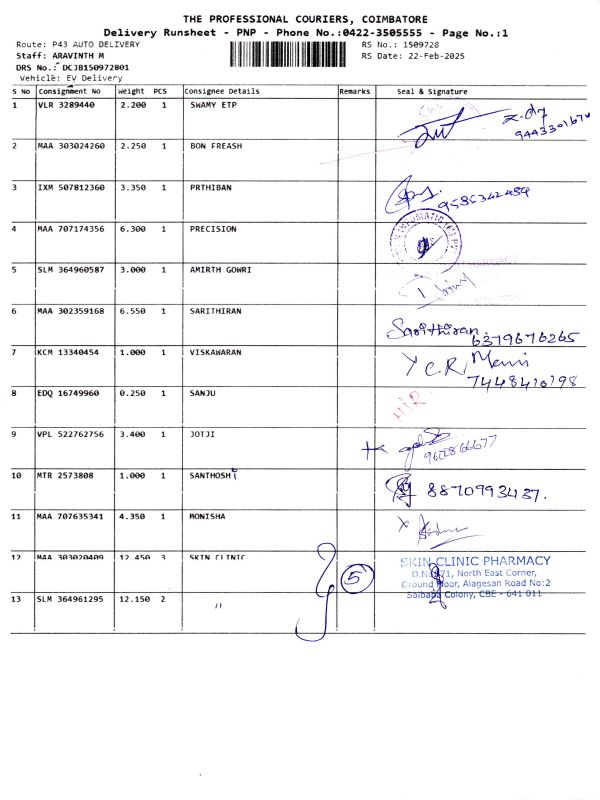 THE PROFESSIONAL COURIERS, COIMBATORE
Delivery Runsheet - PNP - Phone No.:0422-3505555 - Page No.:1
Route: P43 AUTO DELIVERY RS No.: 1509728
Staff: ARAVINTH M RS Date: 22-Feb-2025
DRS No.: DCJB150972801
Vehicle: EV Delivery
S No Consignment No Weight PCS Consignee Details Remarks Seal & Signature
1 VLR 3289440 2.200 1 SWAMY ETP
2 MAA 303024260 2.250 1 BON FREASH
3 IXM 507812360 3.350 1 PRTHIBAN 9585342484
4 MAA 707174356 6.300 1 PRECISION
5 SLM 364960587 3.000 1 AMIRTH GOWRI
6 MAA 302359168 6.550 1 SARITHIRAN Sarithiran
6379676265
7 KCM 13340454 1.000 1 VISKAWARAN Y C R, Mani
7448410798
8 EDQ 16749960 0.250 1 SANJU
9 VPL 522762756 3.400 1 JOTJI
10 MTR 2573808 1.000 1 SANTHOSHi 8870993437.
11 MAA 707635341 4.350 1 MONISHA
12 MAA 303020409 12.450 3 SKIN CLINIC 5 SKIN CLINIC PHARMACY
D.No:71, North East Corner,
Ground Floor, Alagesan Road No:2
Saibaba Colony, CBE - 641 011
13 SLM 364961295 12.150 2 "